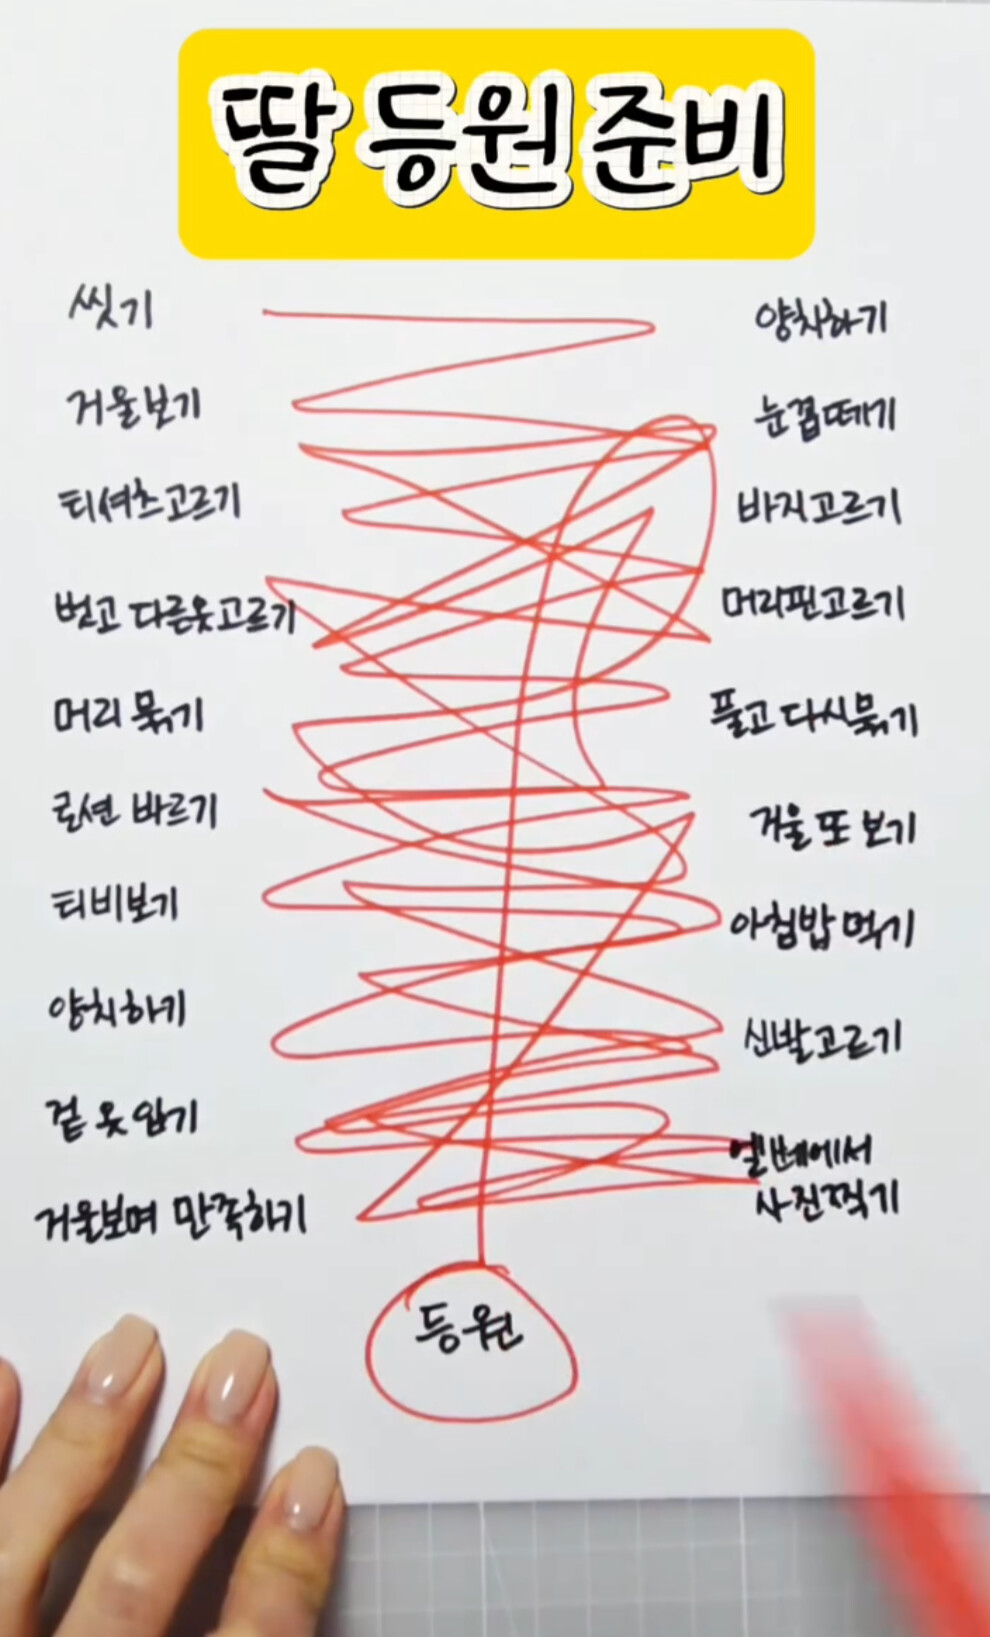 딸 등원 준비
씻기
양치하기
거울보기
눈꼽떼기
티셔츠고르기
바지고르기
벗고 다른옷고르기
머리핀고르기
머리 묶기
풀고 다시묶기
로션 바르기
거울 또 보기
티비보기
아침밥 먹기
양치하기
신발고르기
겉옷입기
엘베에서
사진찍기
거울보며 만족하기
등원